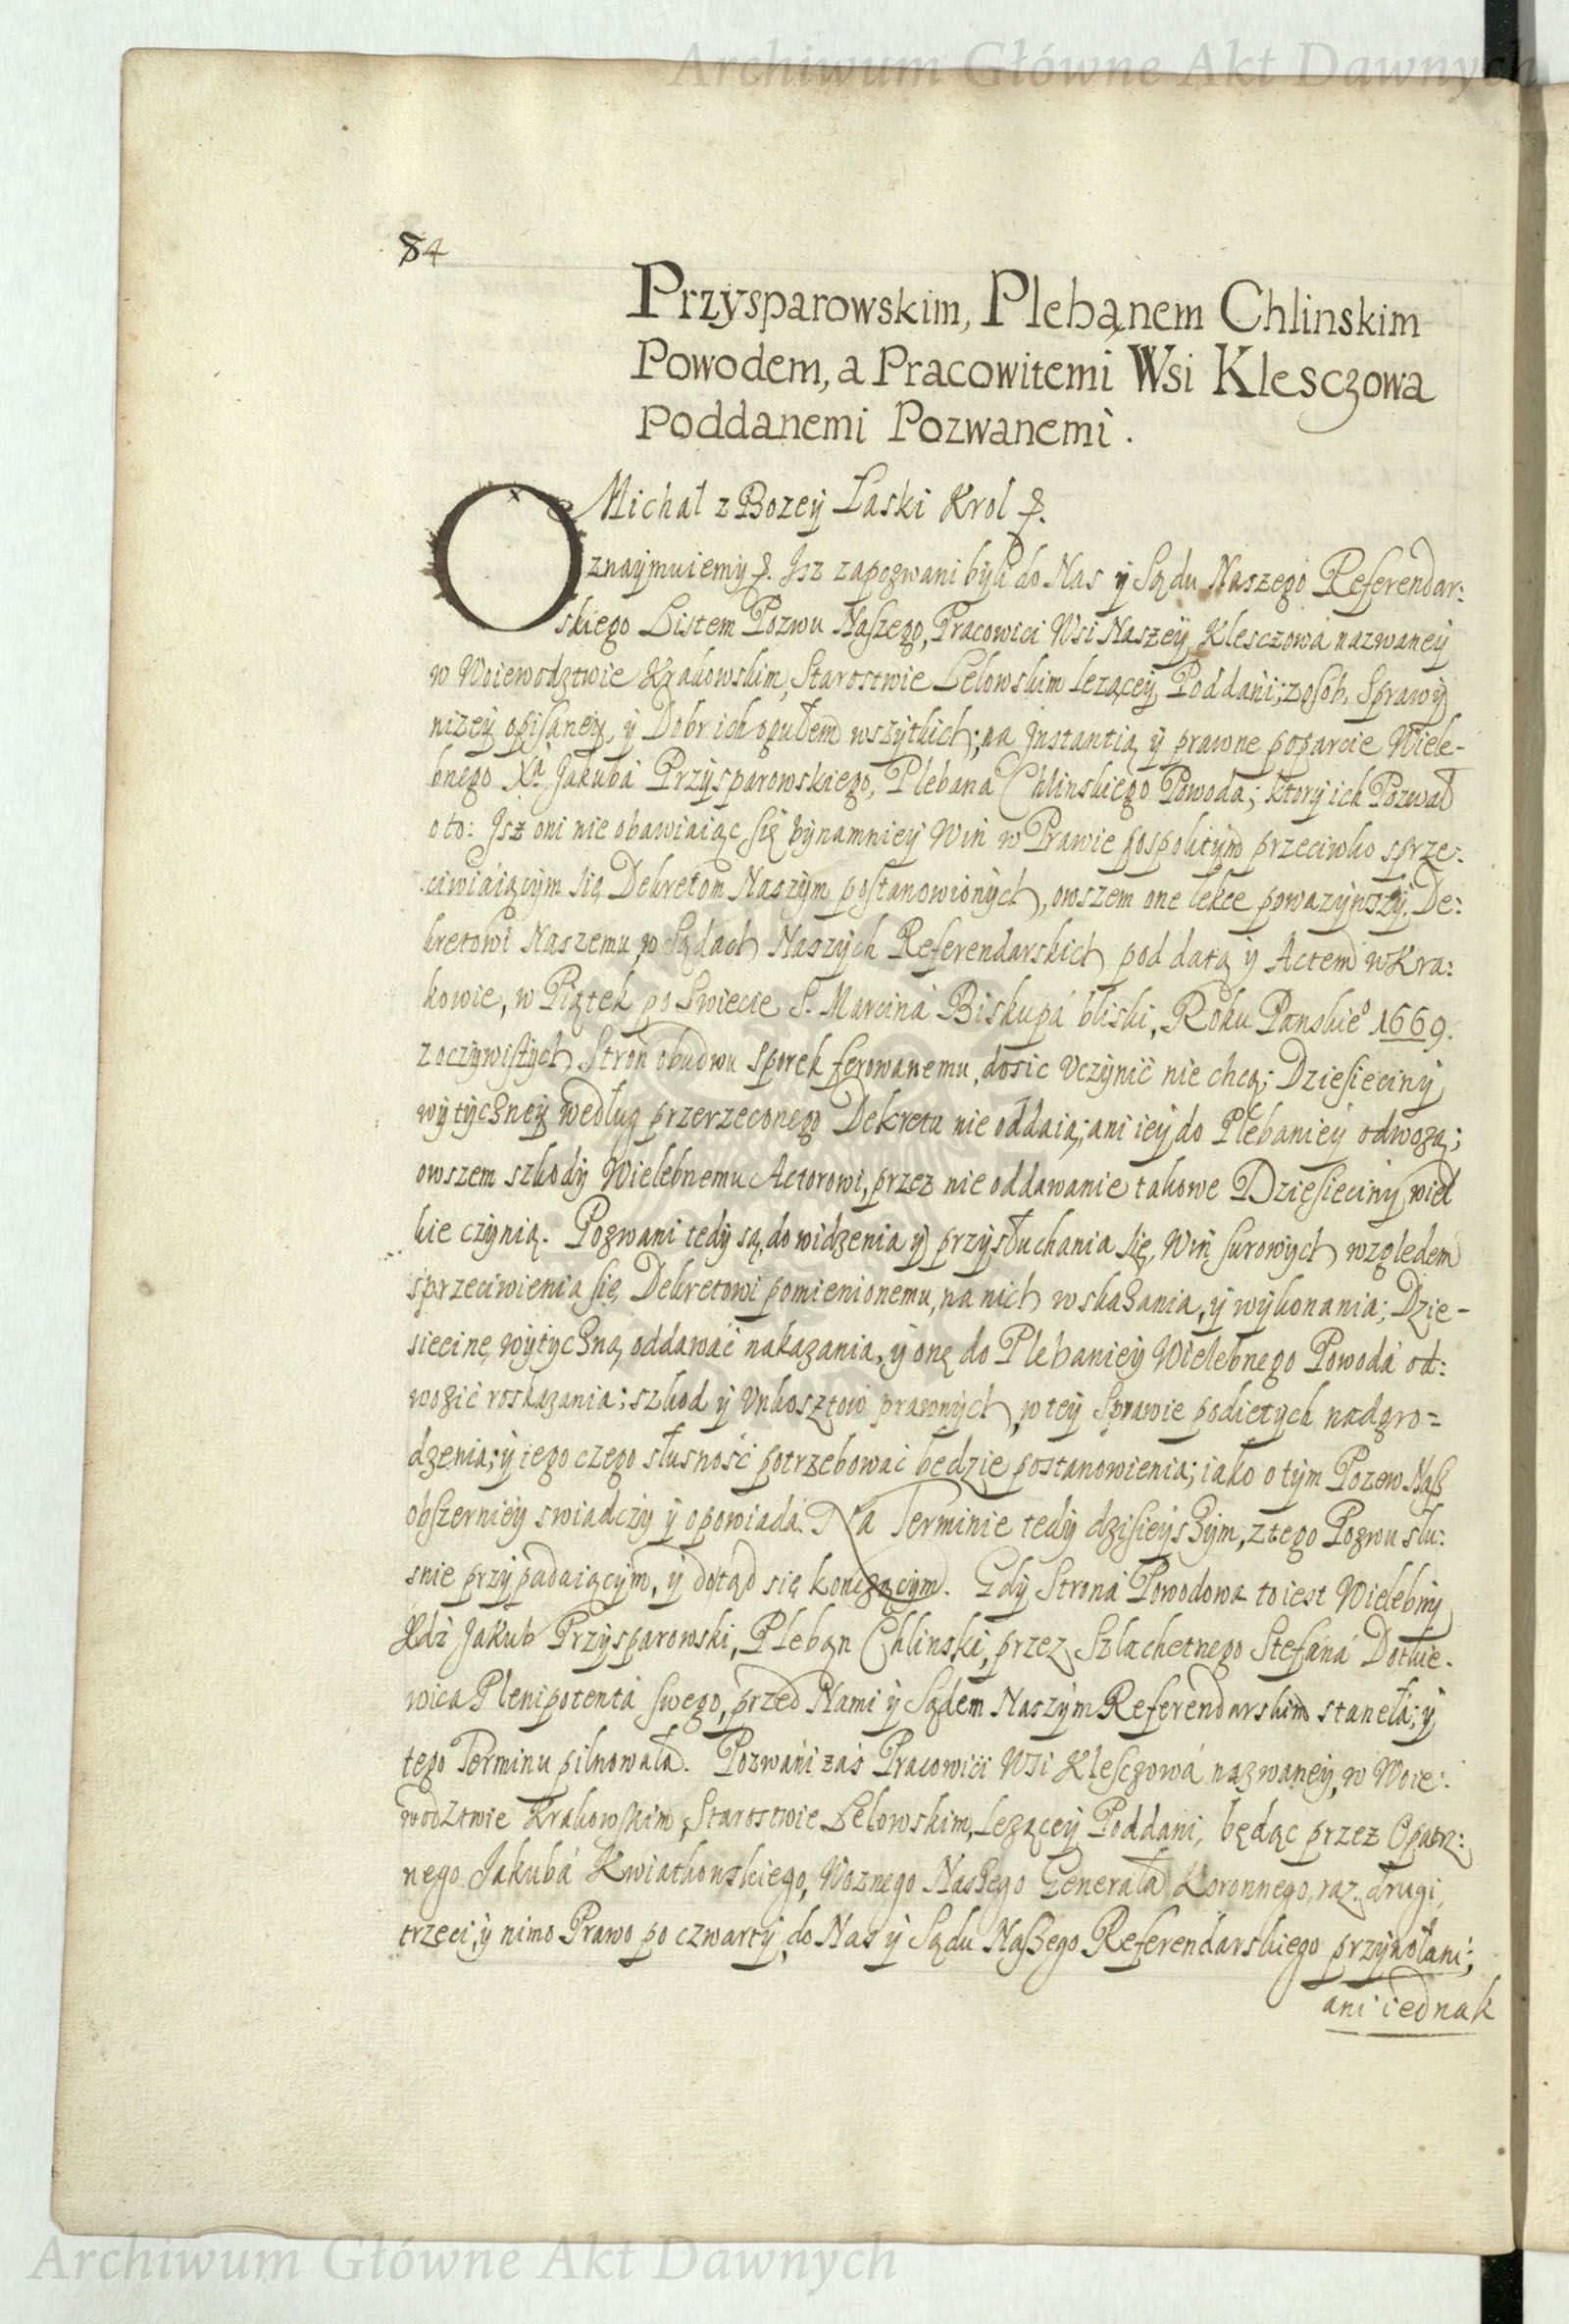 Archiwum Główne Akt Dawnych
84
Przysparowskim, Plebanem Chlinskim
Powodem, a Pracowitemi Wsi Klesczowa
Poddanemi Pozwanemi.
Michał z Bozey Łaski Krol
Oznaymuiemy. Isz zapozwani byli do Nas y Sądu Naszego Referendar:
skiego Listem Pozwu Naszego, Pracowici Wsi Naszey Klesczowa nazwaney
w Woiewodztwie Krakowskim, Starostwie Lelowskim lezącey, Poddani; z osob, Sprawy
nizey opisaney, y Dobr ich ogułem wszytkich; na Instantią y prawne poparcie Wiele-
bnego Xa Jakuba Przysparowskiego, Plebana Chlinskiego Powoda; ktory ich Pozwał
o to: Isz oni nie obawiaiąc się bynamniey Win w Prawie pospolitym przeciwko sprze:
ciwiaiącym się Dekretom Naszym postanowionych, owszem one lekce powazywszy, De:
kretowi Naszemu, w Sądach Naszych Referendarskich pod datą y Actem w Kra:
kowie, w Piątek po Swiecie S. Marcina Biskupa bliski, Roku Panskieo 1669.
z oczywistych Stron obudwu Sporek ferowanemu, dosic Uczynić nie chcą; Dziesieciny
wytyczney według przerzeconego Dekretu nie oddaią; ani iey do Plebaniey odwozą;
owszem szkody Wielebnemu Actorowi, przez nie oddawanie takowe Dziesieciny, wiel
kie czynią. Pozwani tedy są, do widzenia y przysłuchania się, Win surowych względem
sprzeciwienia się, Dekretowi pomienionemu, na nich wskazania, y wykonania; Dzie-
siecinę wytyczną, oddawać nakazania, y onę do Plebaniey Wielebnego Powoda od:
wozić roskazania; szkod y Unkosztow prawnych, w tey Sprawie podietych nadgro=
dzenia; y tego czego słusność potrzebować będzie postanowienia; iako o tym Pozew Nasz
obszerniey swiadczy y opowiada. Na Terminie tedy dzisieyszym, z tego Pozwu słu:
snie przypadaiącym, y dotąd się konczącym. Gdy Strona Powodowa to iest Wielebny
Xdz Jakub Przysparowski, Pleban Chlinski, przez Szlachetnego Stefana
wica Plenipotenta swego, przed Nami y Sądem Naszym Referendarskim staneła; y
tego Terminu pilnowała. Pozwani zas Pracowici Wsi Klesczowa nazwaney, w Woie:
wodztwie Krakowskim, Starostwie Lelowskim, Lezącey Poddani, będąc przez Opatrz:
nego Jakuba Kwiatkowskiego, Woznego Naszego Generała Koronnego, raz, drugi,
trzeci, y nimo Prawo po czwarty, do Nas y Sądu Naszego Referendarskiego przywołani;
ani iednak
Archiwum Główne Akt Dawnych